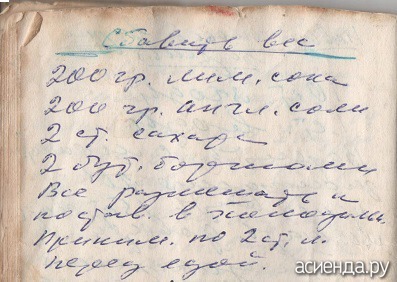 Сбавить вес
200 гр. лим. сока
200 гр. англ. соли
2 ст. сахара
2 бут. боржоми
Все размешать и
постав. в холодильн.
Приним. по 2 ст. л.
перед едой.
асиенда.ру